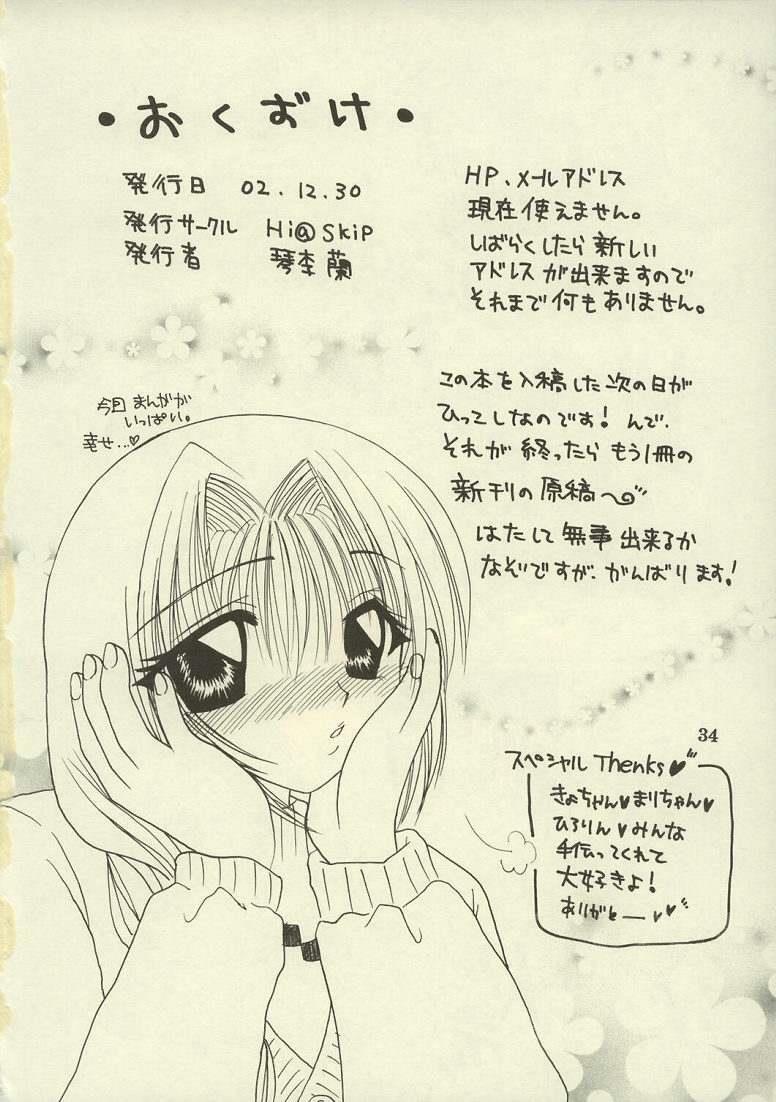 ・おくづけ・
発行日 02.12.30
発行サークル Hi@SkiP
発行者 琴李蘭
HP、メールアドレス
現在使えません。
しばらくしたら新しい
アドレスが出来ますので
それまで何もありません。
今回まんがが
いっぱい。
幸せ…♡
この本を入稿した次の日が
ひっこしなのです!んで、
それが終ったらもう1冊の
新刊の原稿〜
はたして無事出来るか
なぞですが、がんばります!
34
スペシャル Thenks♥
きょちゃん♥まりちゃん♥
ひろりん♥みんな
手伝ってくれて
大好きよ!
ありがとー